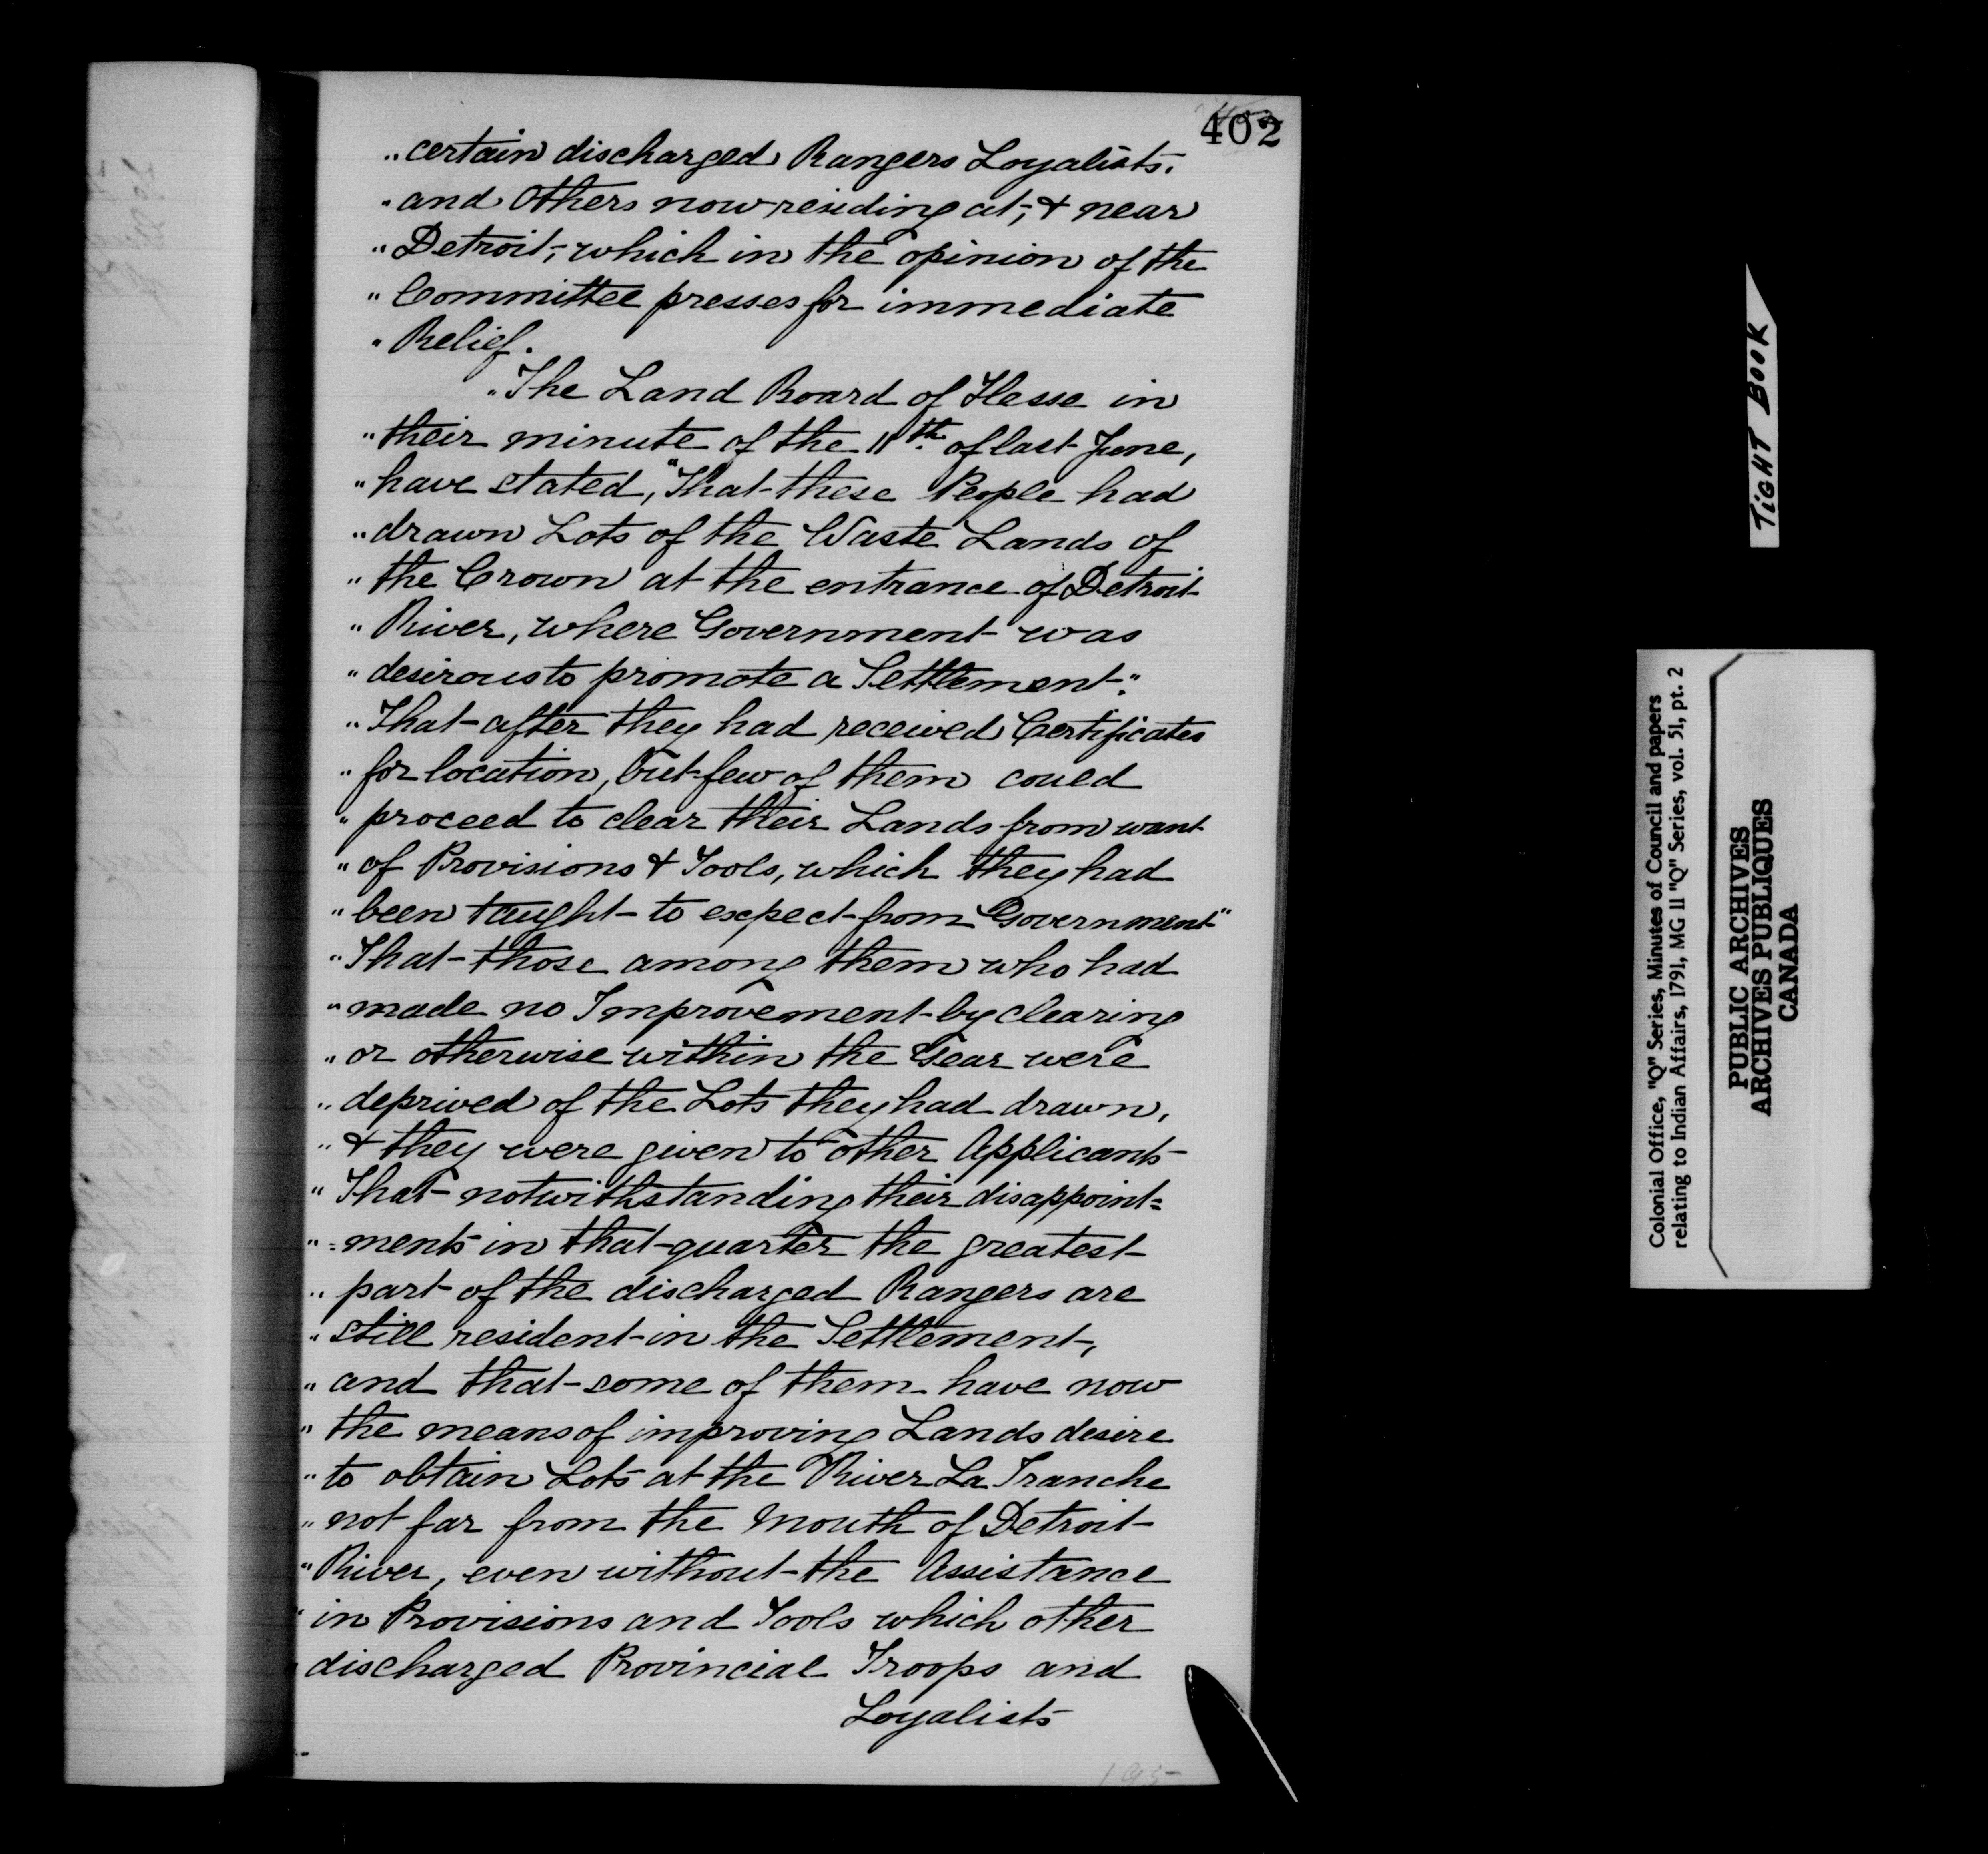 402
" certain discharged Rangers Loyalists.
" and Others now residing at, & near
" Detroit, which in the opinion of the
" Committee presses for immediate
" Relief.
" The Land Board of Hesse in
" their minute of the 11th. of last June,
" have stated, "That these People had
" drawn Lots of the Waste Lands of
" the Crown at the entrance of Detroit
" River, where Government was
" desirous to promote a Settlement."
" That after they had received Certificates
" for location, but few of them could
" proceed to clear their Lands from want
" of Provisions & Tools, which they had
" been taught to expect from Government"
" That those among them who had
" made no Improvement by clearing
" or otherwise within the Year were
" deprived of the Lots they had drawn,
" & they were given to other Applicants
" That notwithstanding their disappoint=
" =ments in that quarter the greatest
" part of the discharged Rangers are
" still resident in the Settlement,
" and that some of them have now
" the means of improving Lands desire
" to obtain Lots at the River La Tranche
" not far from the Mouth of Detroit
" River, even without the Assistance
" in Provisions and Tools which other
" discharged Provincial Troops and
Loyalists
195
TIGHT BOOK
Colonial Office, "Q" Series, Minutes of Council and papers
relating to Indian Affairs, 1791, MG 11 "Q" Series, vol. 51, pt. 2
PUBLIC ARCHIVES
ARCHIVES PUBLIQUES
CANADA